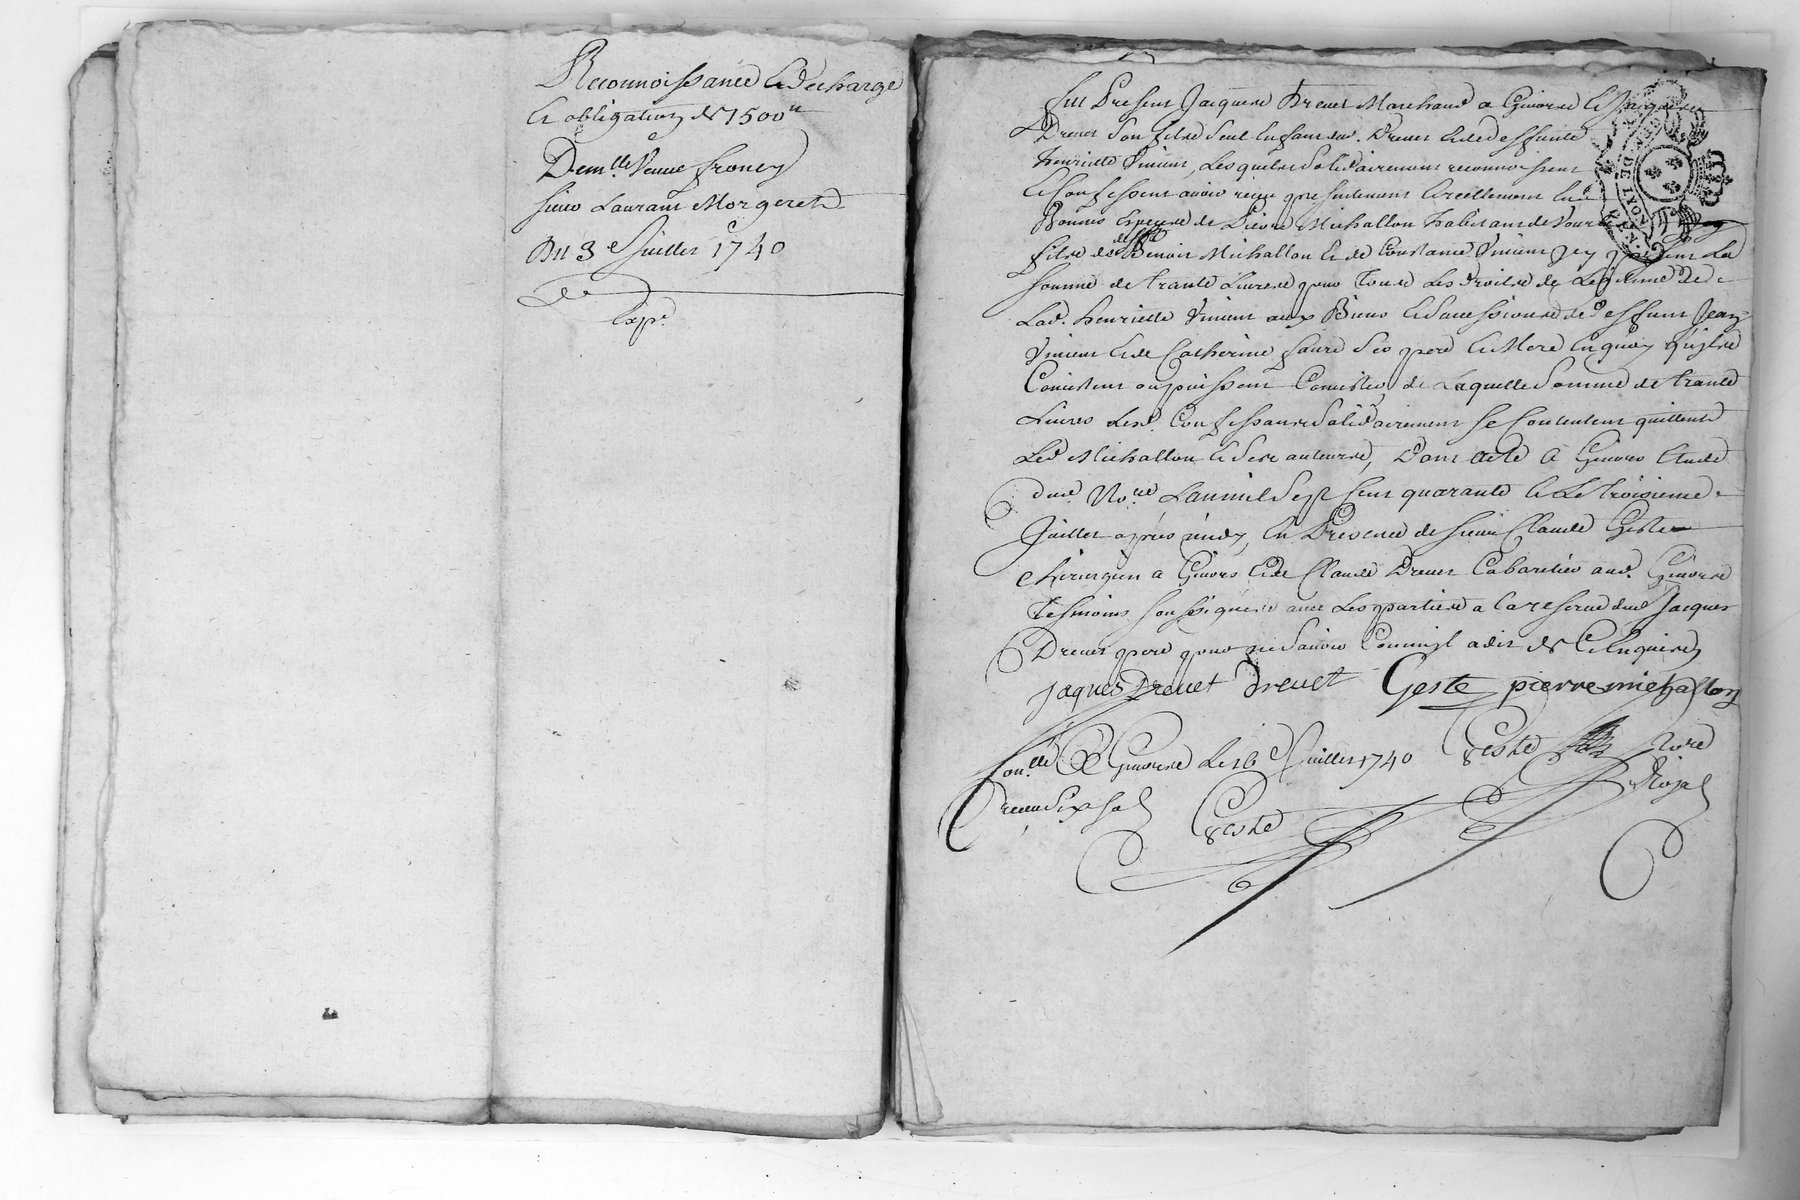 Reconnoissance et decharge
et obligation de 1500ᵗᵗ
Demlle Veuve froney
sieur Laurant Morgeret
Du 3e Juillet 1740
Exp.
fut Present Jacques Drevet Marchand a Givors et Jacques
Drevet son fils seul enfant dud. Drevet et de deffunte
henriette Vincent, Lesquels solidairement reconnoissent
et confessent avoir receu presentement et reellement en
Bonnes especes de Pierre Michallon habitant de
fils de deffunt Benoit Michallon et de Constance Vincent jcy present La
somme de trante Livres pour tous Les droits de Legitime de
Lad. henriette Vincent aux Biens et successions de deffunt Jean
Vincent et de Catherine faure ses pere et Mere en quoy qu'ils
Concistent ou puissent Concister de Laquelle somme de trante
Livres Lesd. Confessants solidairement se Contentent quittent
Led. Michallon et ses autheurs, Dont acte a Givors Etude
dud. Nore. Lan mil sept Cent quarante et Le troisieme
Juillet apres midy, en Presence de sieur Claude Geste
chirurgien a Givors et de Claude Drevet Cabaretier aud. Givors
tesmoins soussignes avec Les parties a la reserve dud. Jacques
Drevet pere pour ne sçavoir Comme il a dit de ce Enquis
jaques Drevet Drevet Geste pierre michallon
Conlle a Givors Le 16e Juillet 1740 Geste Nore
receu six sol Geste Royal
GEN. DE LYON